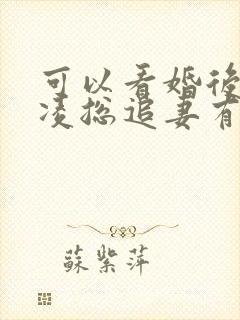 可以看婚後
凌总追妻有
蘇紫萍